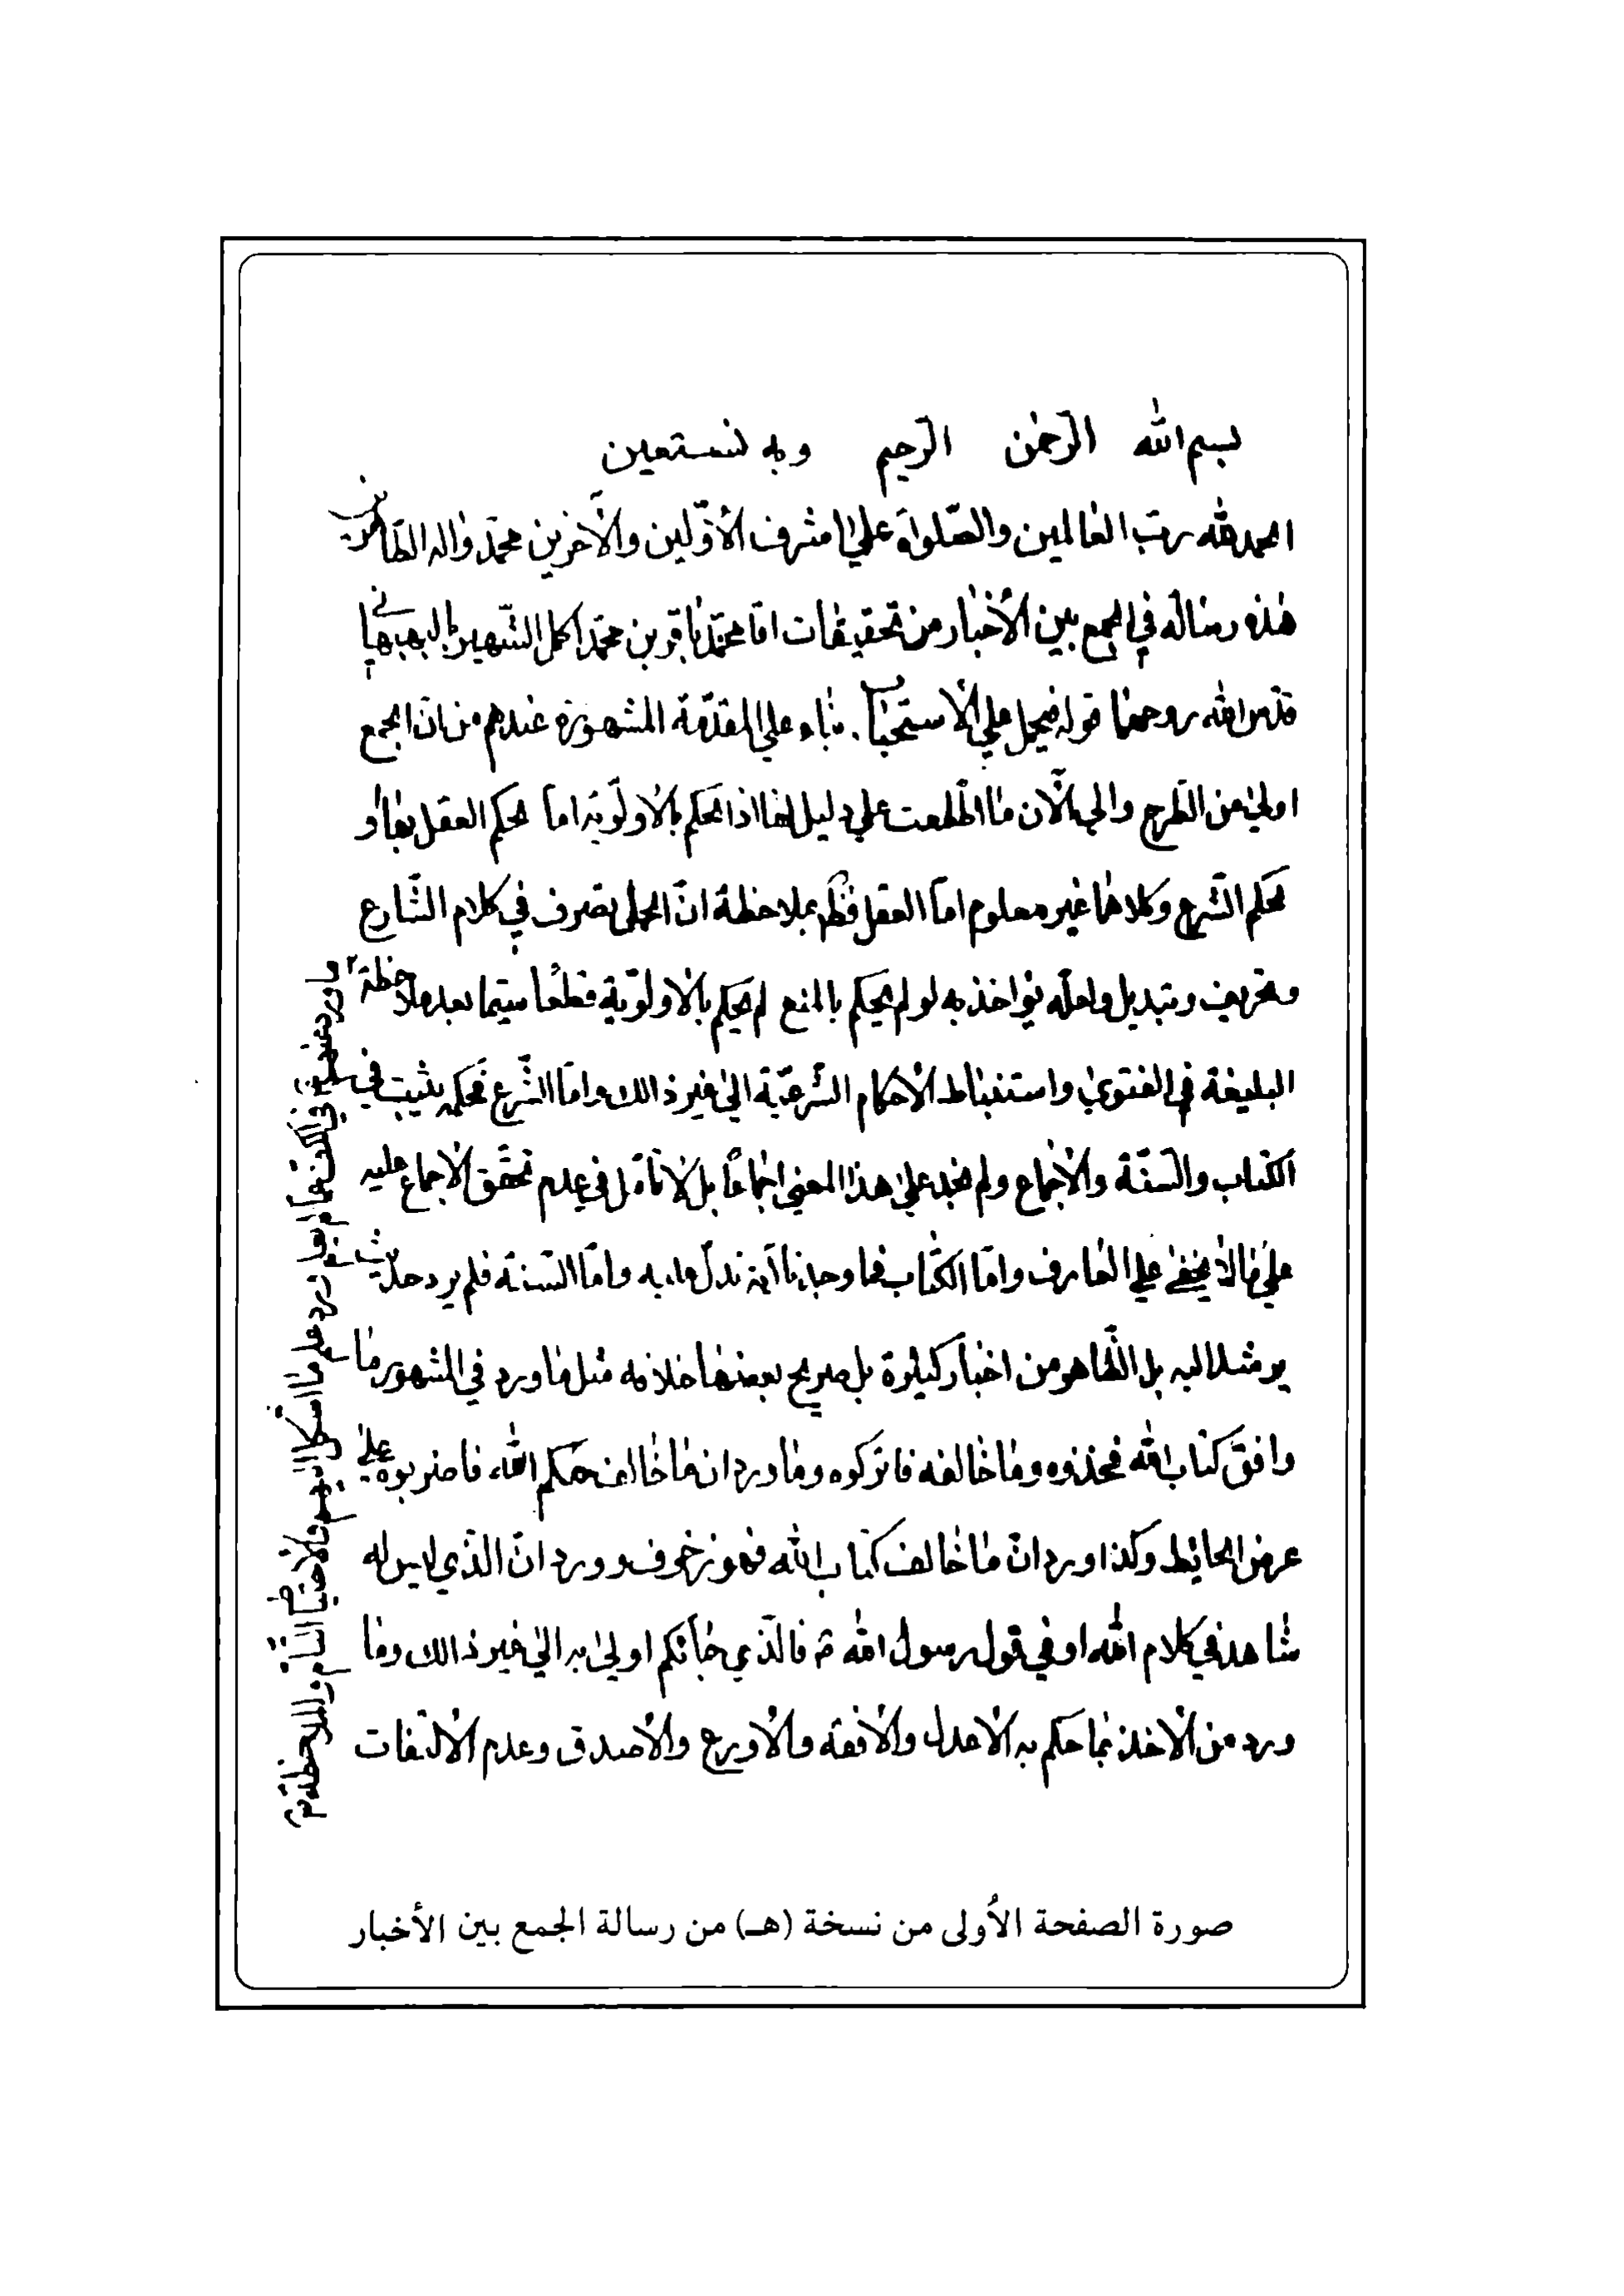 بسم الله الرحمن الرحيم وبه نستعين
الحمد لله رب العالمين والصّلواة على اشرف الأوّلين والآخرين محمّد واله الطّاهرين
هذه رسالة في الجمع بين الأخبار من تحقيقات اقا محمّد باقر بن محمّد اكمل الشّهير بالبهبهاني
قدّس الله روحهما قوله فيحمل على الاستحباب بناء على المقدّمة المشهورة عندهم من انّ الجمع
اولى من الطّرح والى الآن ما اطّلعت على دليل لها اذ الحكم بالاولويّة امّا بحكم العقل بها او
بحكم الشّرع وكلاهما غير معلوم امّا العقل فظ بملاحظة انّ الحمل تصرف في كلام الشّارع
وتحريف وتبديل ولعلّه يؤاخذ به لو لم يحكم بالمنع لم يحكم بالاولويّة قطعًا سيّما بعد ملاحظة
البليغة في الفتوى واستنباط الأحكام الشّرعيّة الى غير ذالك وامّا الشّرع فحكمه يثبت في
الكتاب والسّنّة والاجماع ولم نجد على هذا المعنى اجماعًا بل لا تأمّل في عدم تحقّق الاجماع عليه
على ما لا يخفى على العارف وامّا الكتاب فما وجدنا آية تدلّ عليه وامّا السّنة فلم يرد حديث
يرشد اليه بل الظّاهر من اخبار كثيرة بل صريح بعضها خلافه مثل ما ورد في المشهور ما
وافق كتاب الله فخذوه وما خالفه فاتركوه وما ورد ان ما خالف حكم الله فاضربوه على
عرض الحائط وكذا ورد انّ ما خالف كتاب الله فهو زخرف وورد انّ الذّي ليس له
شاهد في كلام الله او في قول رسول الله ص فالّذي جاءكم اولى به الى غير ذالك وما
ورد من الأخذ بما حكم به الاعدل والأفقه والأورع والأصدق وعدم الالتفات
ما ورد عنهم في الكف عما لم يعلم ورد علم ما اشكل اليهم والاحتياط التّامّ والملاحظة
صورة الصفحة الأولى من نسخة (هـ) من رسالة الجمع بين الأخبار